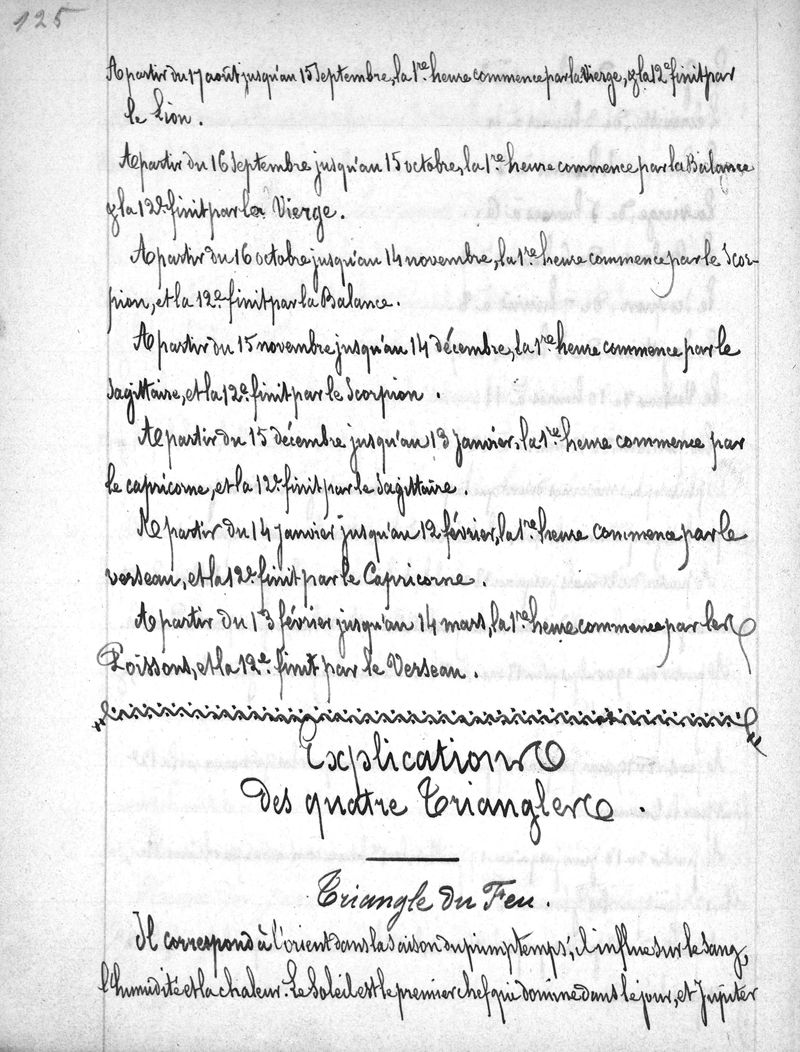 125
A partir du 17 août jusqu'au 15 Septembre, la 1re heure commence par la Vierge, & la 12e finit par
le Lion.
A partir du 16 Septembre jusqu'au 15 octobre, la 1re heure commence par la Balance
& la 12e finit par la Vierge.
A partir du 16 octobre jusqu'au 14 novembre, la 1re heure commence par le Scor-
pion, et la 12e finit par la Balance.
A partir du 15 novembre jusqu'au 14 décembre, la 1re heure commence par le
Sagittaire, et la 12e finit par le Scorpion
A partir du 15 décembre jusqu'au 13 Janvier, la 1re heure commence par
le capricorne, et la 12e finit par le Sagittaire.
A partir du 14 janvier jusqu'au 12 février, la 1re heure commence par le
verseau, et la 12e finit par le Capricorne.
A partir du 13 février jusqu'au 14 mars, la 1re heure commence par les
Poissons, et la 12e finit par le Verseau.
Explications
des quatre Triangles.
Triangle du Feu.
Il correspond à l'orient dans la saison du pimptemps, il influe sur le sang,
l'humidité et la chaleur. Le Soleil est le premier chef qui domine dans le jour, et Jupiter